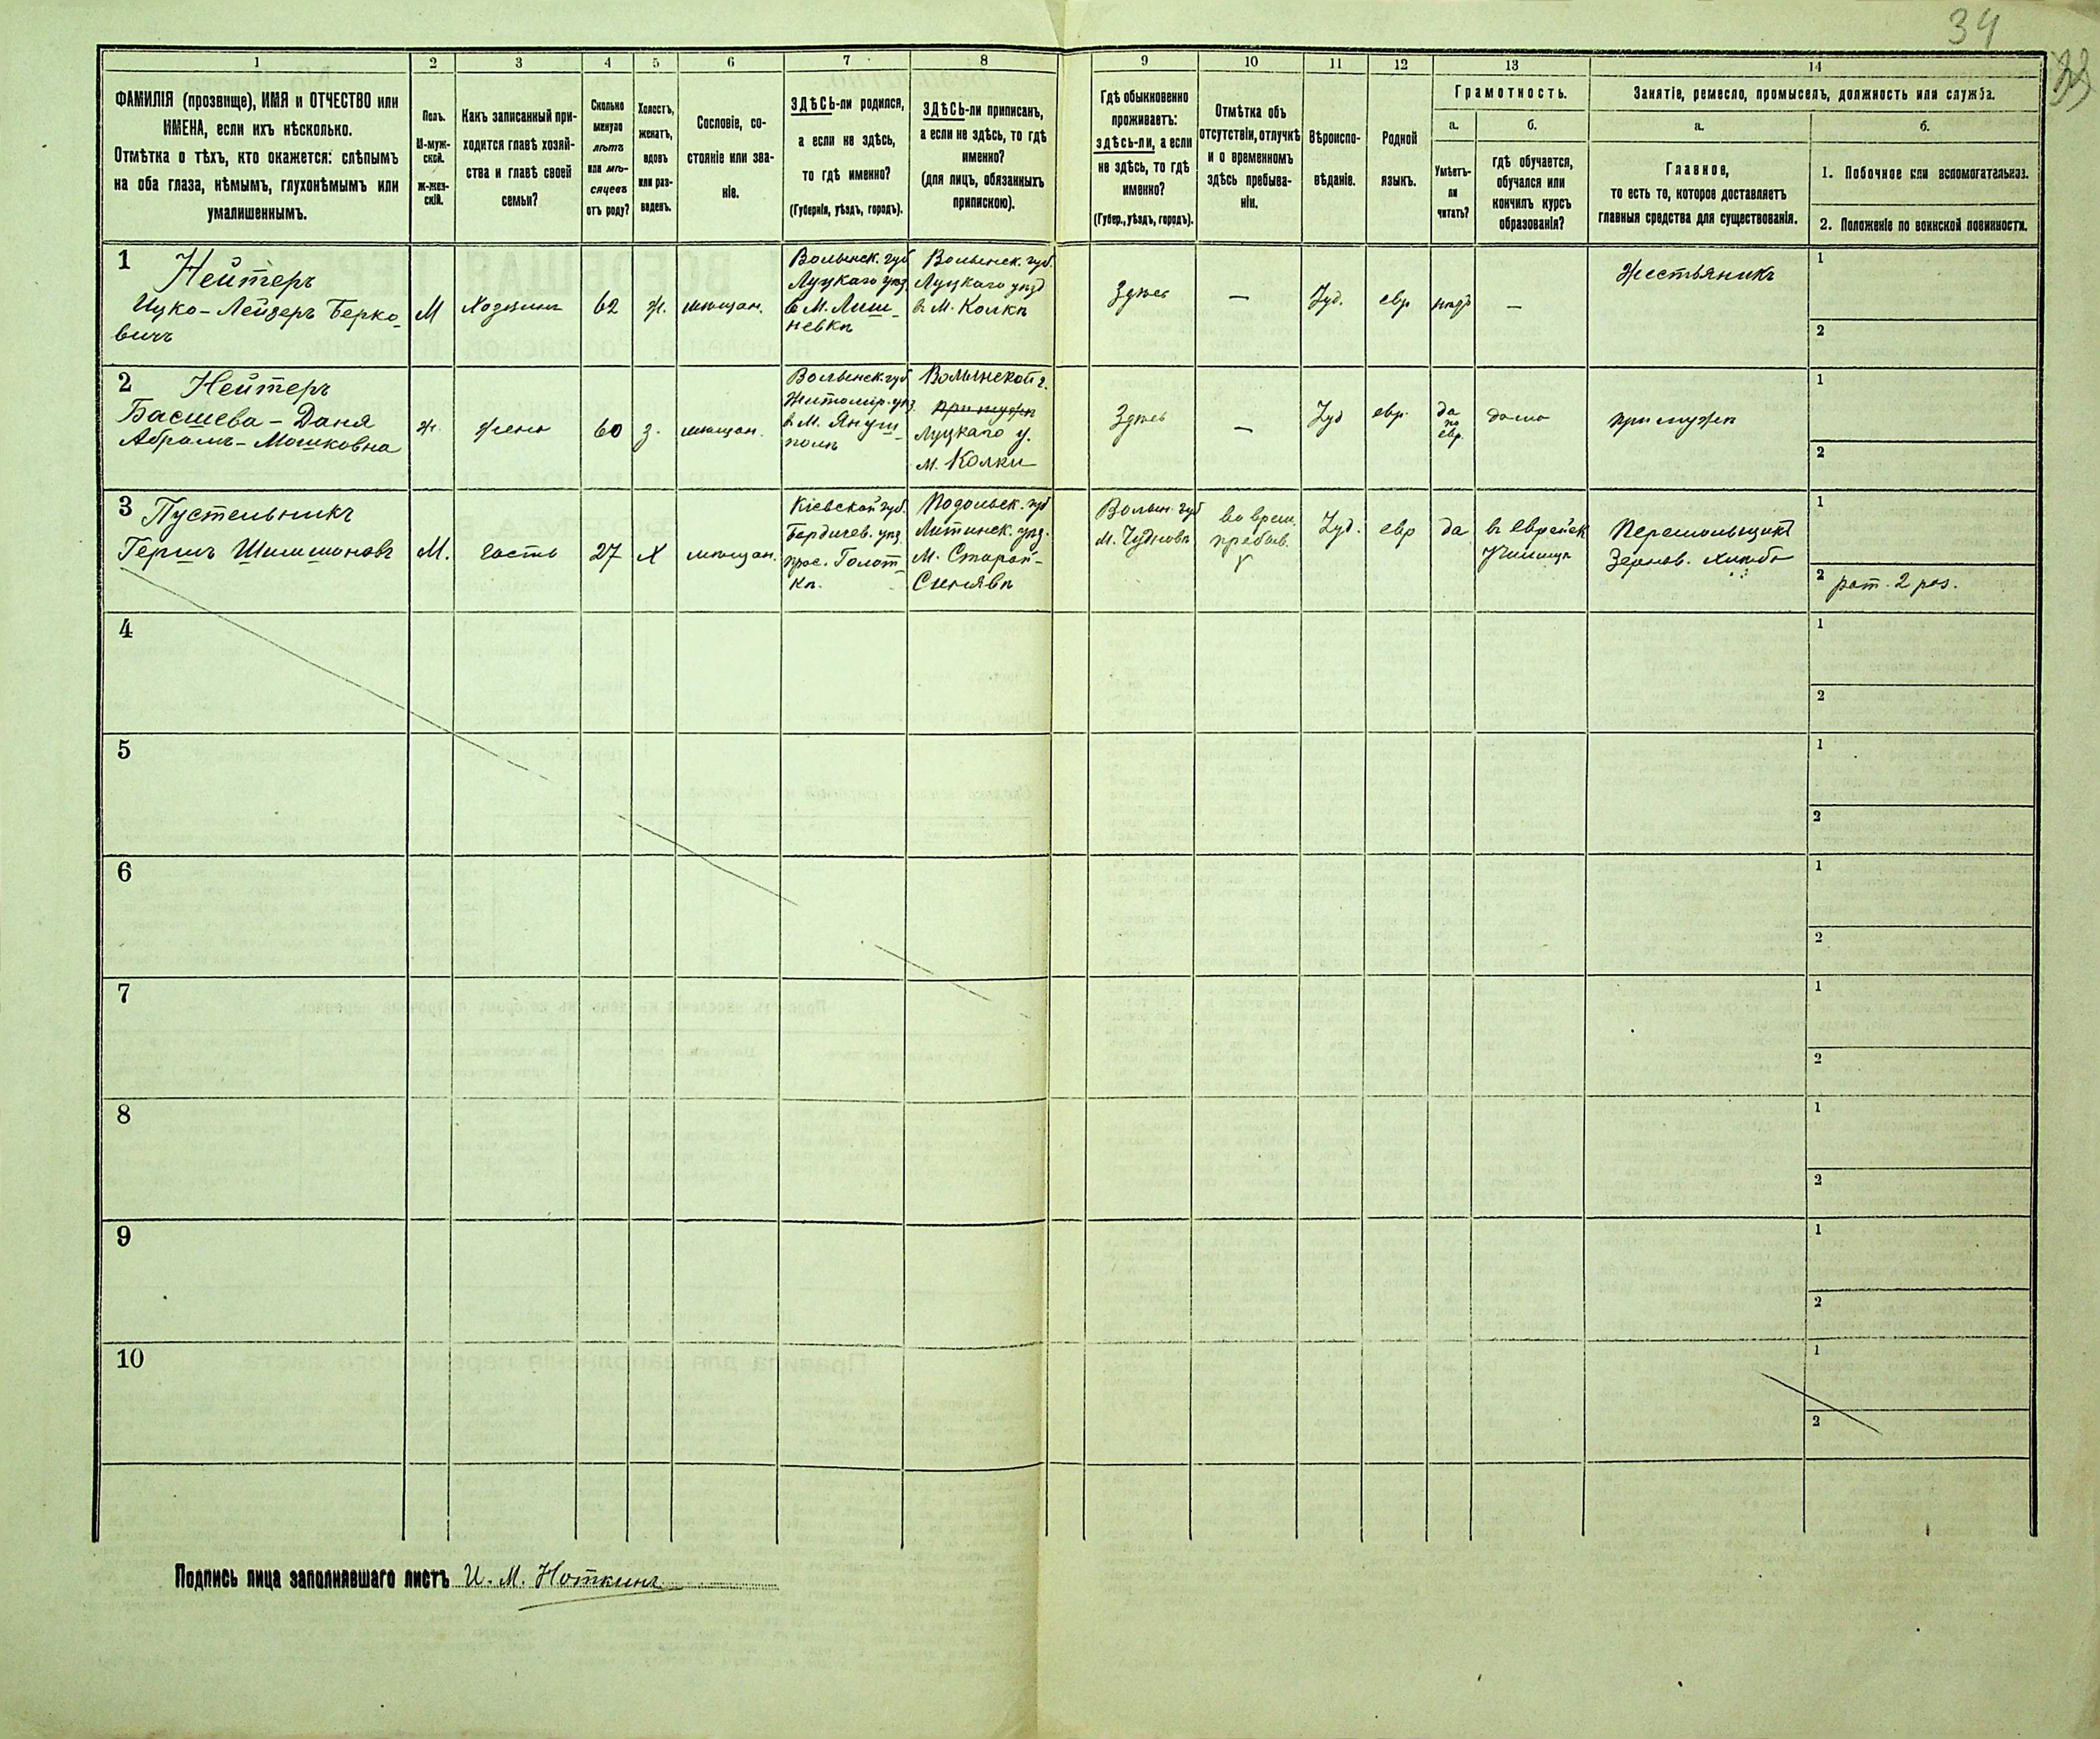 34
1 2 3 4 5 6 7 8 9 10 11 12 13 14
ФАМИЛІЯ (прозвище), ИМЯ и ОТЧЕСТВО или
ИМЕНА, если ихъ нѣсколько.
Отмѣтка о тѣхъ, кто окажется: слѣпымъ
на оба глаза, нѣмымъ, глухонѣмымъ или
умалишеннымъ.
Полъ.
М-муж-
ской.
Ж-жен-
скій.
Какъ записанный при-
ходится главѣ хозяй-
ства и главѣ своей
семьи?
Сколько
минуло
лѣтъ
или мѣ-
сяцевъ
отъ роду?
Холостъ,
женатъ,
вдовъ
или раз-
веденъ.
Сословіе, со-
стояніе или зва-
ніе.
ЗДѢСЬ-ли родился,
а если не здѣсь,
то гдѣ именно?
(Губернія, уѣздъ, городъ).
ЗДѢСЬ-ли приписанъ,
а если не здѣсь, то гдѣ
именно?
(для лицъ, обязанныхъ
припискою).
Гдѣ обыкновенно
проживаетъ:
здѣсь-ли, а если
не здѣсь, то гдѣ
именно?
(Губер., уѣздъ, городъ).
Отмѣтка объ
отсутствіи, отлучкѣ
и о временномъ
здѣсь пребыва-
ніи.
Вѣроиспо-
вѣданіе.
Родной
языкъ.
Грамотность.
а.
Умѣетъ-
ли
читать?
б.
гдѣ обучается,
обучался или
кончилъ курсъ
образованія?
Занятіе, ремесло, промыселъ, должность или служба.
а.
Главное,
то есть то, которое доставляетъ
главныя средства для существованія.
б.
1. Побочное или вспомогательное.
2. Положеніе по воинской повинности.
1 Нейтеръ
Ицко-Лейзеръ Берко-
вичъ
М
Хозяинъ
62
ж.
мѣщан.
Волынск. губ
Луцкаго уѣзд
в М. Лиш-
невкѣ
Волынск. губ.
Луцкаго уѣзд
в М. Колкѣ
Здѣсь
—
Іуд.
евр.
нѣтъ
—
Жестьяникъ
1
2
2 Нейтеръ
Басшева-Даня
Абрамъ-Мошковна
ж.
жена
60
з.
мѣщан.
Волынск. губ
Житомір. уѣз.
в М. Януш-
полѣ
Волынской г.
при мужѣ
Луцкаго у.
м. Колки
Здѣсь
—
Іуд
евр.
да
по
евр.
дома
при мужѣ
1
2
3 Пустельникъ
Гершъ Шимшоновъ
М.
гость
27
Х
мѣщан.
Кіевской губ.
Бердичев. уѣз.
Волын. губ
М. Чудновѣ
Подольск. губ
Литинск. уѣз.
М. Старой-
Синявѣ
во врем.
пребыв.
Іуд.
евр
да
въ еврейск
Училищѣ
1
2 рат. 2 раз.
4
1
2
5
1
2
6
1
2
7
1
2
8
1
2
9
1
2
10
1
2
Подпись лица заполнявшаго листъ И. М. Ноткинъ